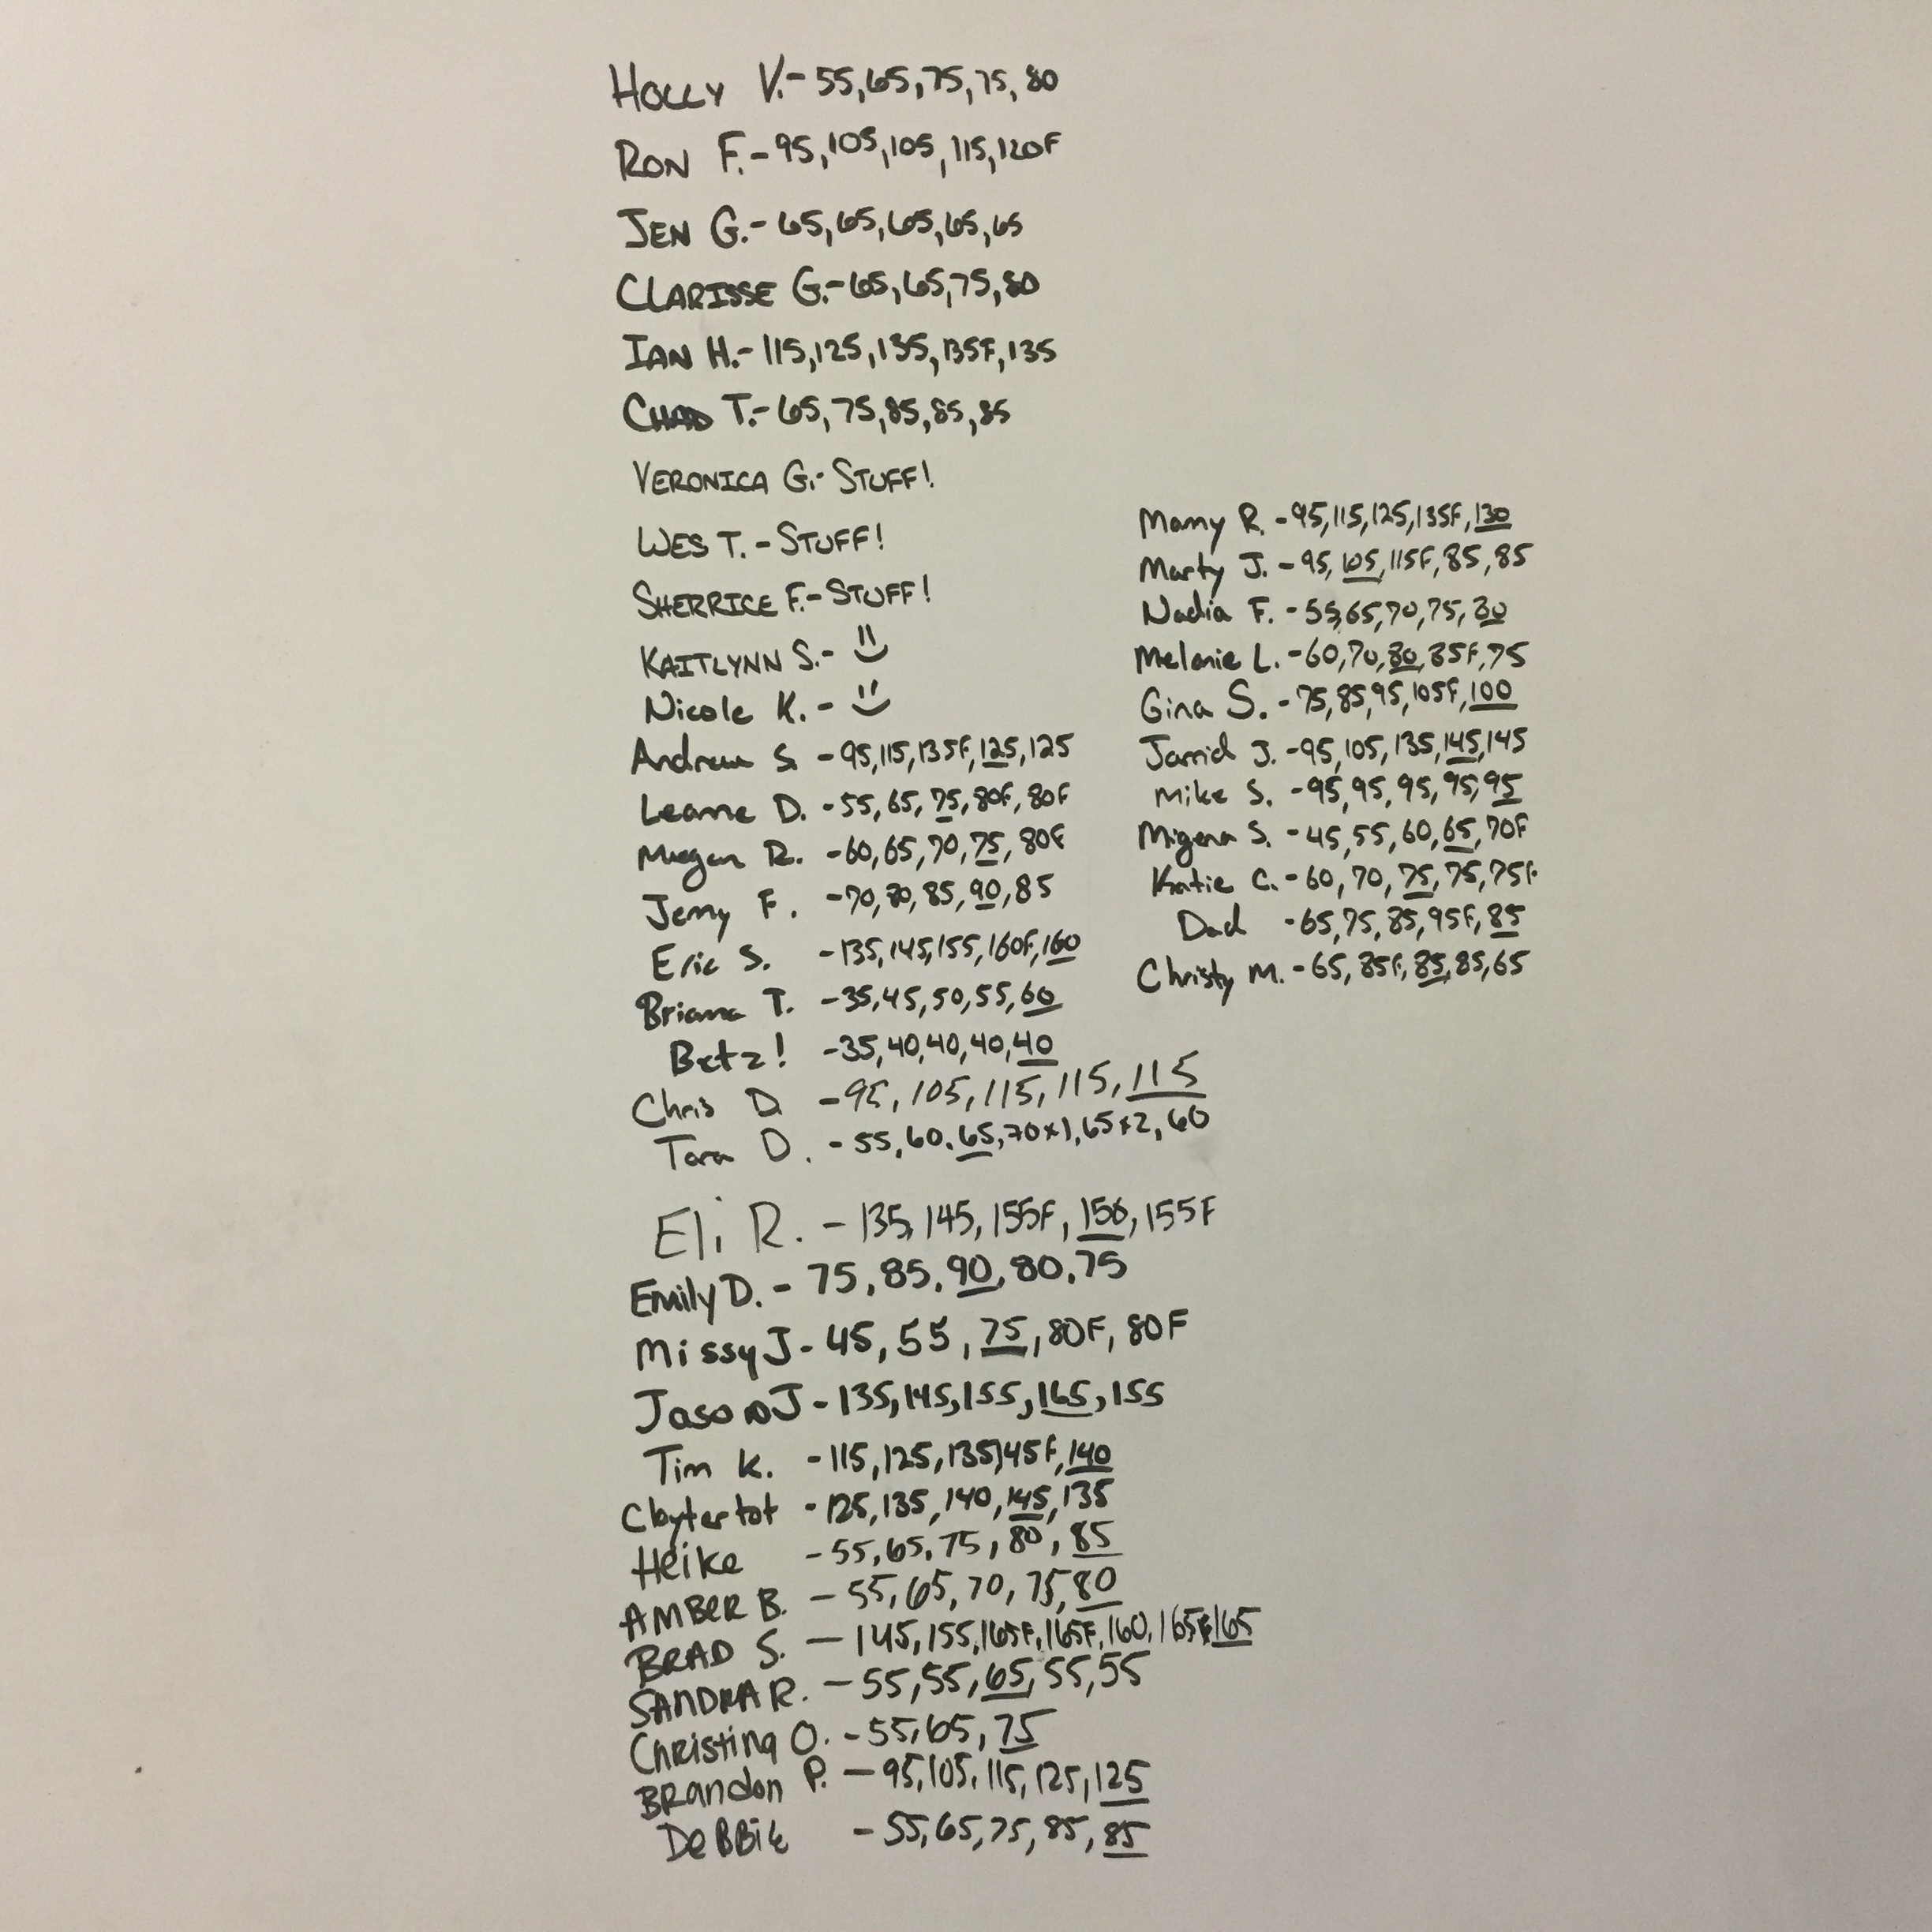 HOLLY V.- 55,65,75,75,80
RON F.- 95,105,105,115,120F
JEN G.- 65,65,65,65,65
CLARISSE G.- 65,65,75,80
IAN H.- 115,125,135,135F,135
CHAD T.- 65,75,85,85,85
VERONICA G.- STUFF!
WES T. - STUFF!
SHERRICE F.- STUFF!
KAITLYNN S.-
Nicole K. -
Andrew S. - 95,115,135F,125,125
Leanne D. - 55,65,75,80F,80F
Meegan R. - 60,65,70,75,80F
Jenny F. - 70,80,85,90,85
Eric S. - 135,145,155,160F,160
Briana T. - 35,45,50,55,60
Betz! - 35,40,40,40,40
Chris D. - 95,105,115,115,115
Tara D. - 55,60,65,70x1,65x2,60
Eli R. - 135,145,155F,150,155F
Emily D. - 75,85,90,80,75
Missy J - 45,55,75,80F,80F
Jason J - 135,145,155,165,155
Tim K. - 115,125,135,145F,140
Claytertot - 125,135,140,145,135
Heike - 55,65,75,80,85
AMBER B. - 55,65,70,75,80
BRAD S. - 145,155,165F,165F,160,165F,165
SANDRA R. - 55,55,65,55,55
Christina O. - 55,65,75
BRandon P. - 95,105,115,125,125
DeBBie - 55,65,75,85,85
Manny R. - 95,115,125,135F,130
Marty J. - 95,105,115F,85,85
Nadia F. - 55,65,70,75,80
Melanie L. - 60,70,80,85F,75
Gina S. - 75,85,95,105F,100
Jarrid J. - 95,105,135,145,145
Mike S. - 95,95,95,95,95
Migena S. - 45,55,60,65,70F
Katie C. - 60,70,75,75,75F
Dad - 65,75,85,95F,85
Christy M. - 65,85F,85,85,65